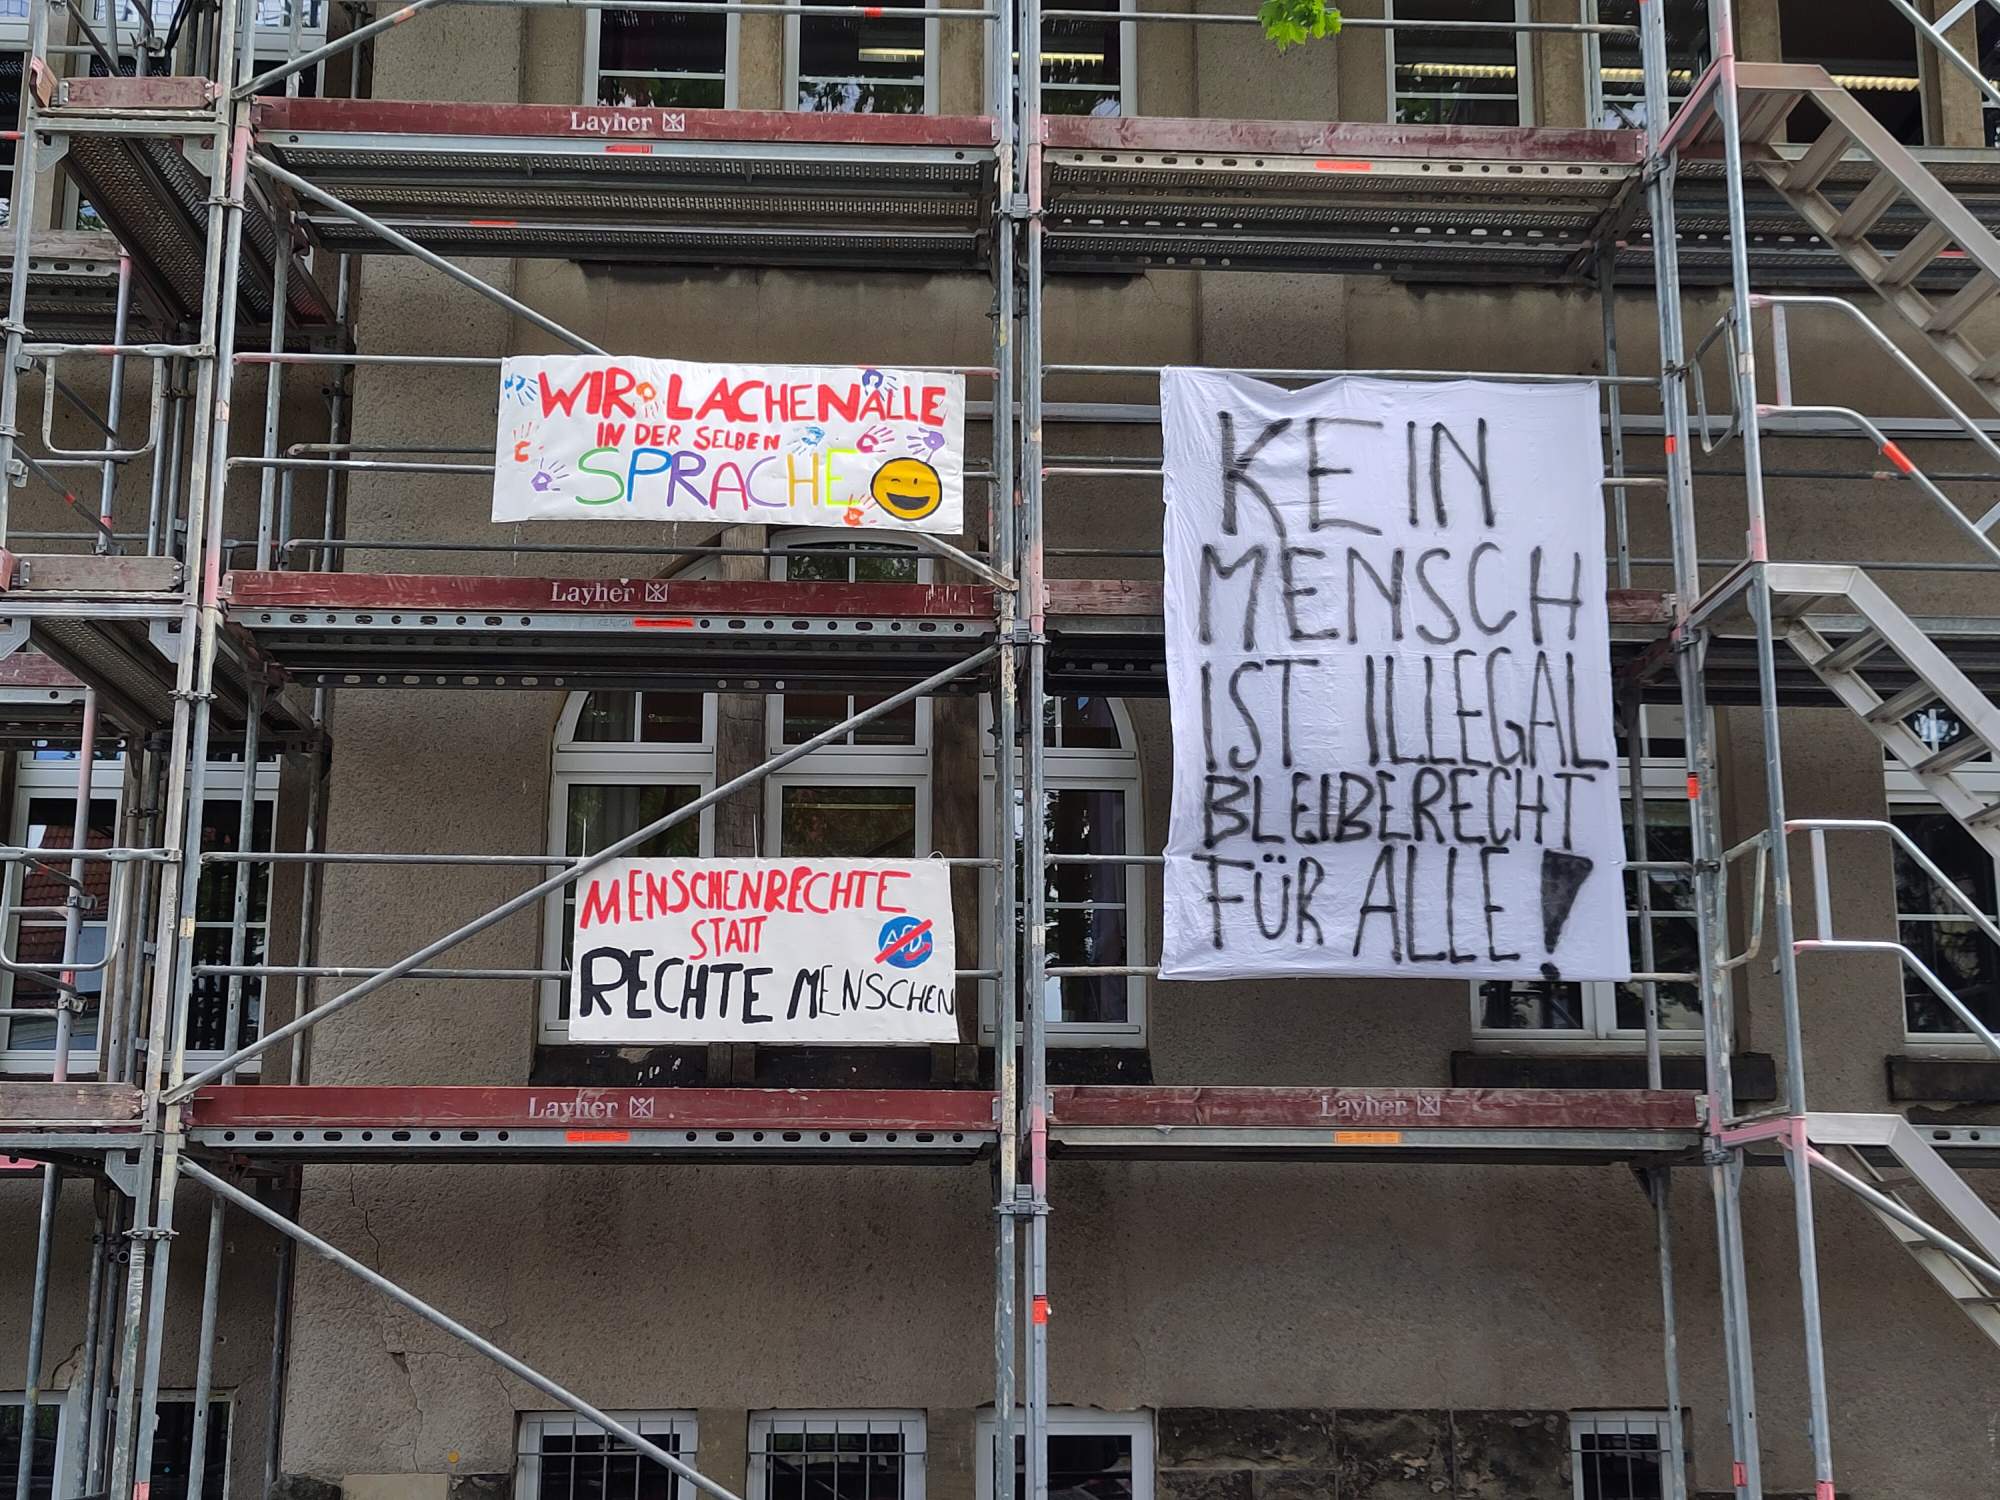 Layher
WIR LACHEN ALLE
IN DER SELBEN
SPRACHE
Layher
MENSCHENRECHTE
STATT
AfD
RECHTE MENSCHEN
KEIN
MENSCH
IST ILLEGAL
BLEIBERECHT
FÜR ALLE!
Layher
Layher